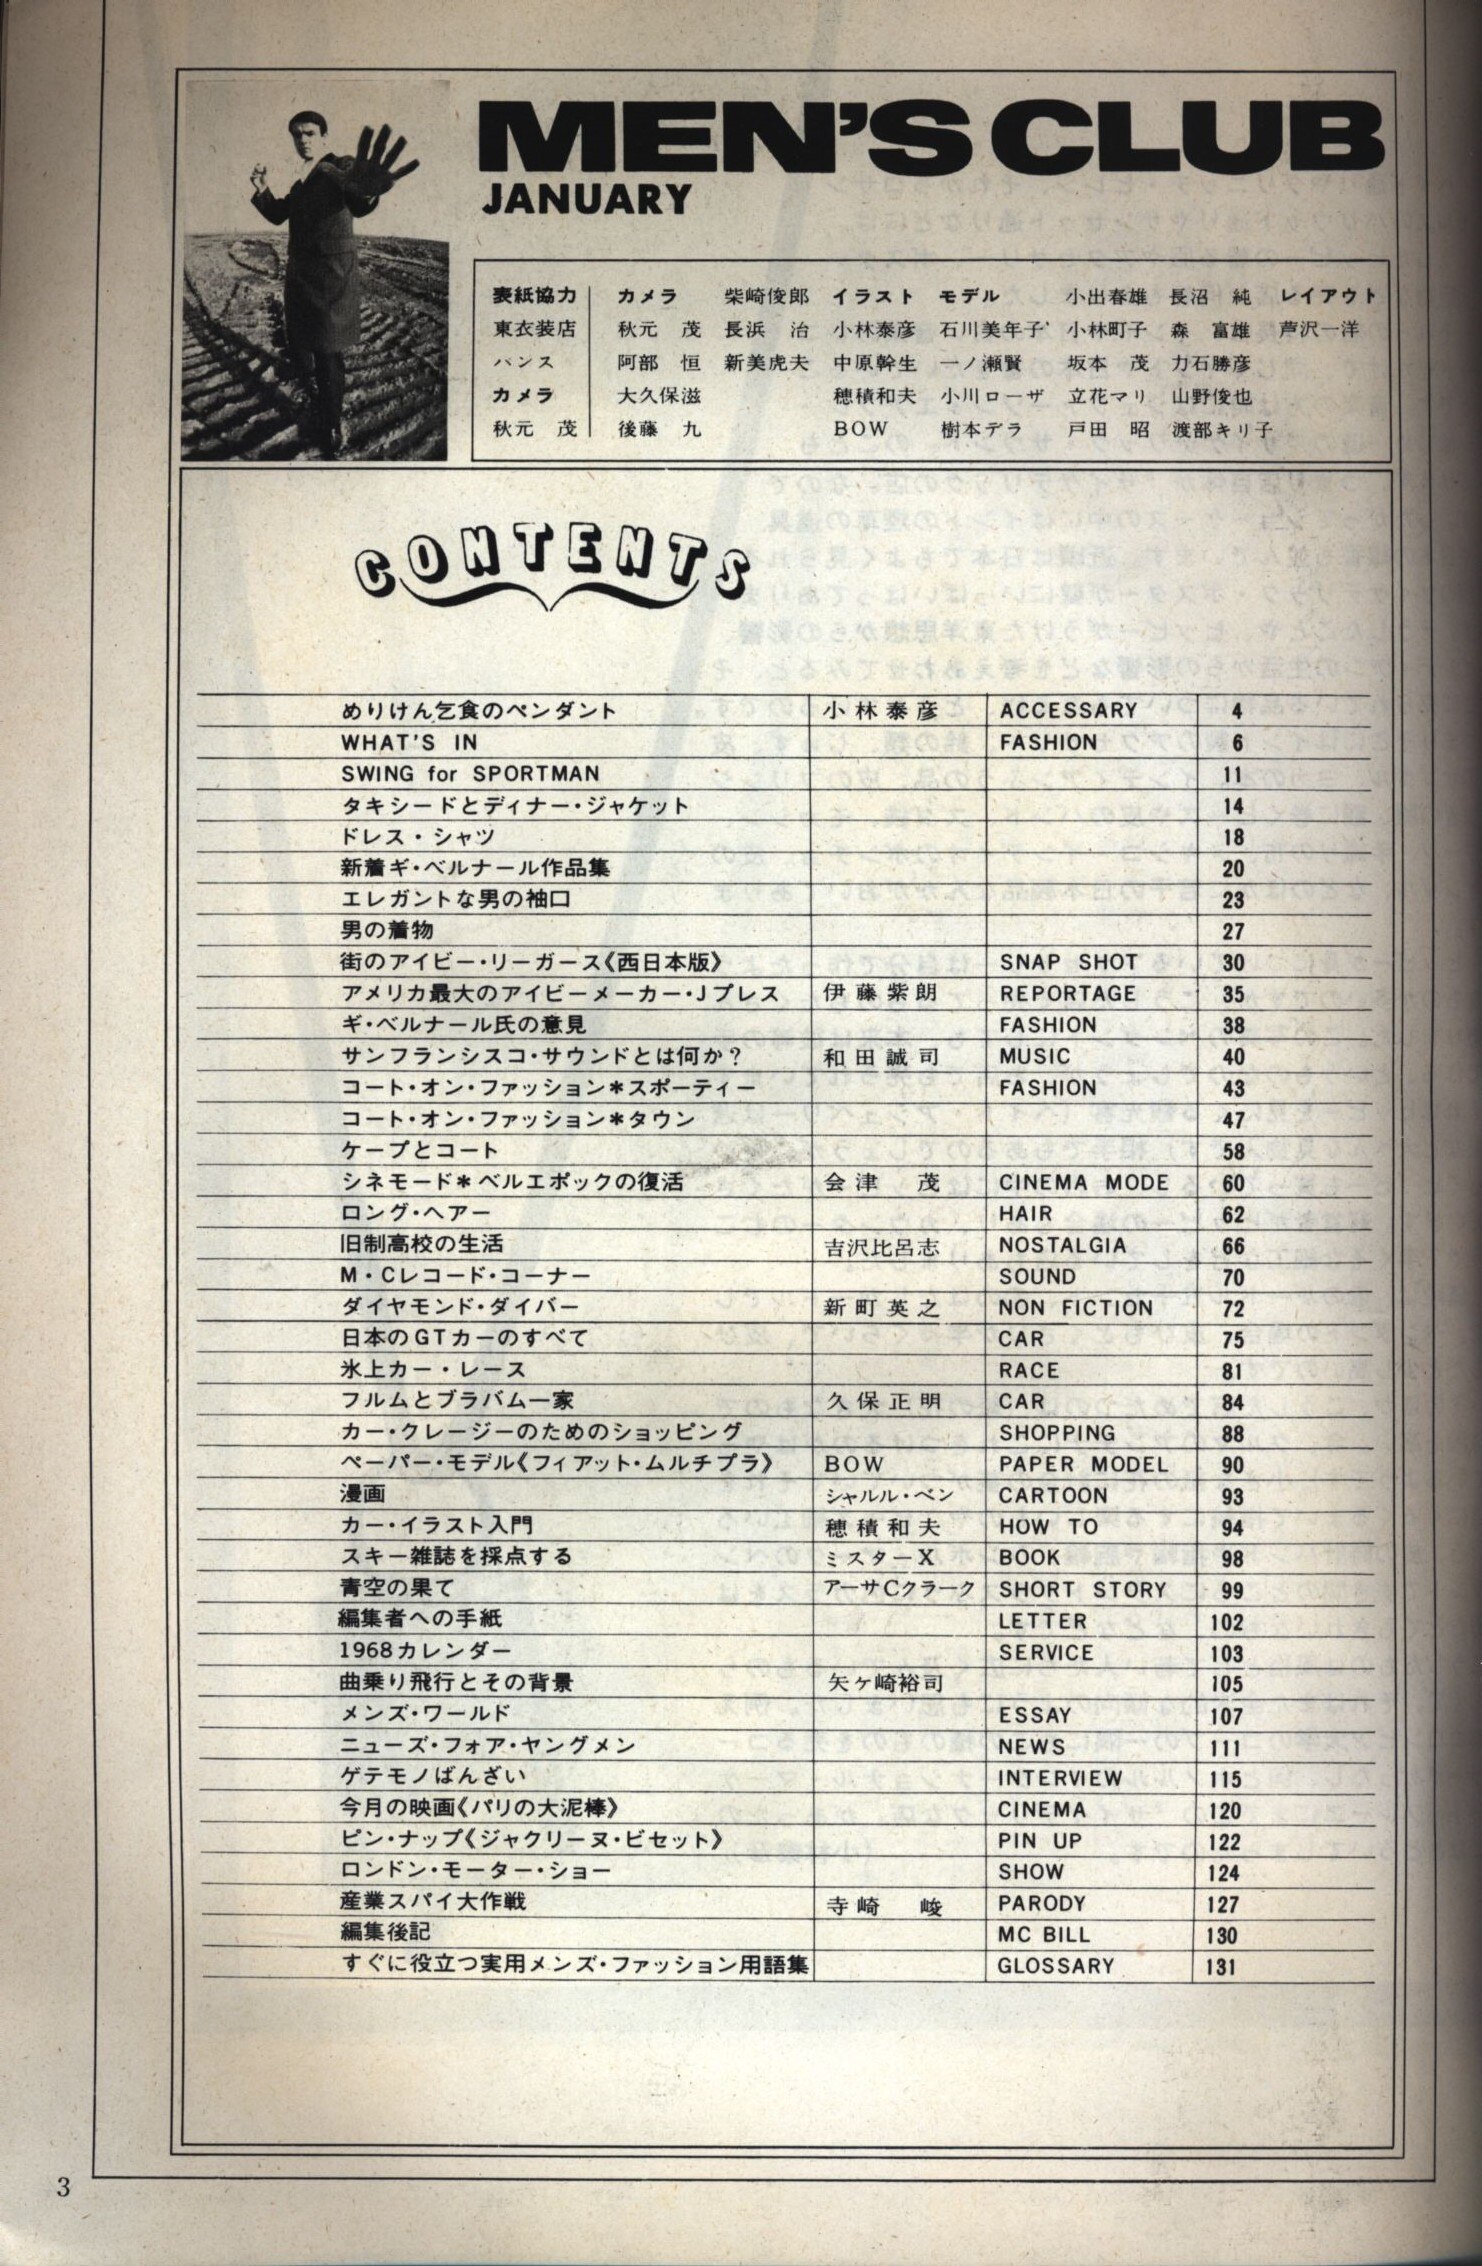 MEN'S CLUB
JANUARY
表紙協力 カメラ 柴崎俊郎 イラスト モデル 小出春雄 長沼 純 レイアウト
東衣装店 秋元 茂 長浜 治 小林泰彦 石川美年子 小林町子 森 富雄 芦沢一洋
バンス 阿部 恒 新美虎夫 中原幹生 一ノ瀬賢 坂本 茂 力石勝彦
カメラ 大久保滋 穂積和夫 小川ローザ 立花マリ 山野俊也
秋元 茂 後藤 九 BOW 樹本デラ 戸田 昭 渡部キリ子
CONTENTS
めりけん乞食のペンダント 小林泰彦 ACCESSARY 4
WHAT'S IN FASHION 6
SWING for SPORTMAN 11
タキシードとディナー・ジャケット 14
ドレス・シャツ 18
新着ギ・ベルナール作品集 20
エレガントな男の袖口 23
男の着物 27
街のアイビー・リーガース《西日本版》 SNAP SHOT 30
アメリカ最大のアイビーメーカー・Jプレス 伊藤紫朗 REPORTAGE 35
ギ・ベルナール氏の意見 FASHION 38
サンフランシスコ・サウンドとは何か? 和田誠司 MUSIC 40
コート・オン・ファッション*スポーティー FASHION 43
コート・オン・ファッション*タウン 47
ケープとコート 58
シネモード*ベルエポックの復活 会津 茂 CINEMA MODE 60
ロング・ヘアー HAIR 62
旧制高校の生活 吉沢比呂志 NOSTALGIA 66
M・Cレコード・コーナー SOUND 70
ダイヤモンド・ダイバー 新町英之 NON FICTION 72
日本のGTカーのすべて CAR 75
氷上カー・レース RACE 81
フルムとブラバム一家 久保正明 CAR 84
カー・クレージーのためのショッピング SHOPPING 88
ペーパー・モデル《フィアット・ムルチプラ》 BOW PAPER MODEL 90
漫画 シャルル・ベン CARTOON 93
カー・イラスト入門 穂積和夫 HOW TO 94
スキー雑誌を採点する ミスターX BOOK 98
青空の果て アーサCクラーク SHORT STORY 99
編集者への手紙 LETTER 102
1968カレンダー SERVICE 103
曲乗り飛行とその背景 矢ヶ崎裕司 105
メンズ・ワールド ESSAY 107
ニューズ・フォア・ヤングメン NEWS 111
ゲテモノばんざい INTERVIEW 115
今月の映画《パリの大泥棒》 CINEMA 120
ピン・ナップ《ジャクリーヌ・ビセット》 PIN UP 122
ロンドン・モーター・ショー SHOW 124
産業スパイ大作戦 寺崎 峻 PARODY 127
編集後記 MC BILL 130
すぐに役立つ実用メンズ・ファッション用語集 GLOSSARY 131
3